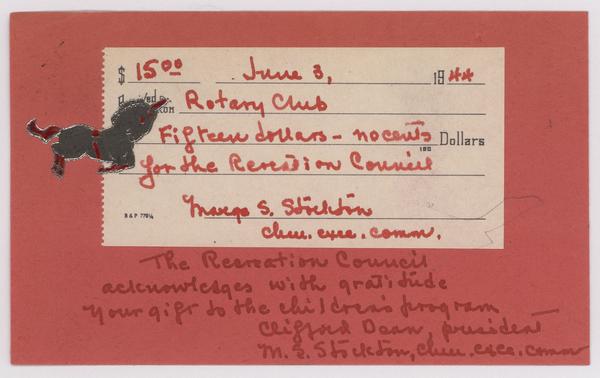 $ 15.00 June 3, 1944
Rotary Club
Fifteen dollars - no cents
100 Dollars
for the Recreation Council
Margo S. Stockton
B & P 770¼
chm. exec. comm.
The Recreation Council
acknowledges with gratitude
your gift to the children's program
Clifford Dean, president
M. S. Stockton, chm. exec. comm